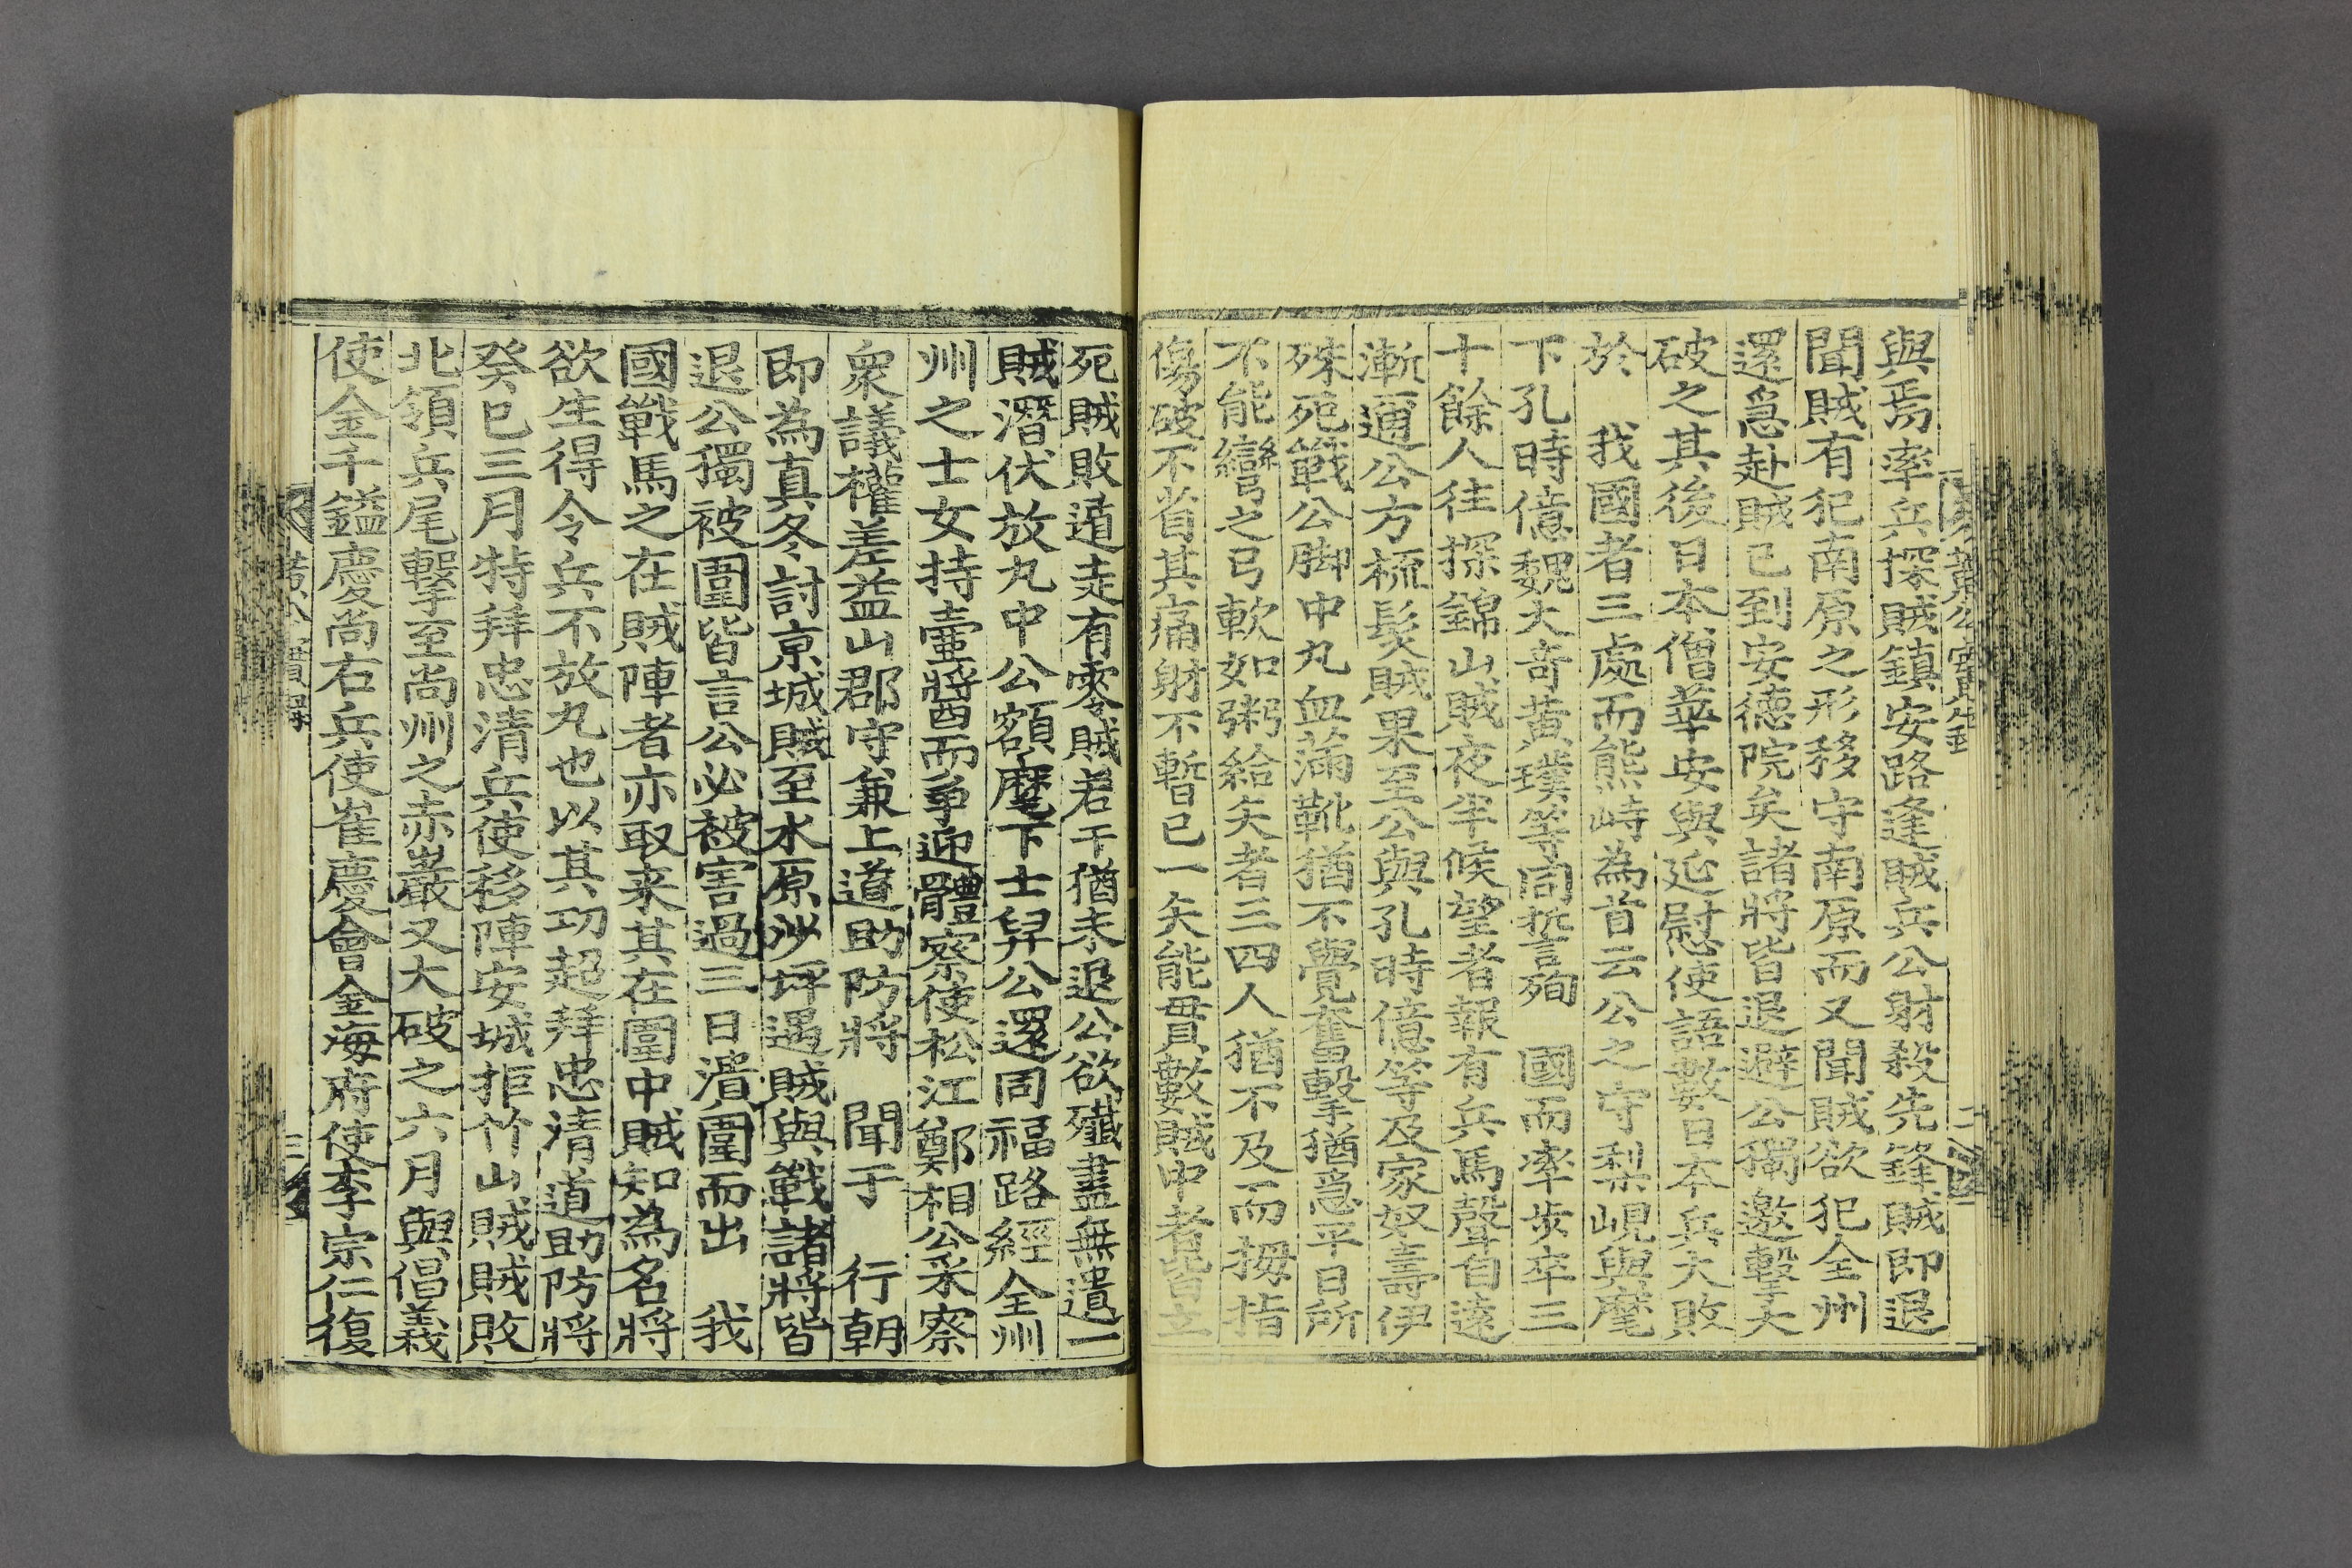 與焉率兵探賊鎮安路逢賊兵公射殺先鋒賊即退
聞賊有犯南原之形移守南原而又聞賊欲犯全州
還急赴賊已到安德院矣諸將皆退避公獨邀擊大
破之其後日本僧華安與延慰使語數日本兵大敗
於 我國者三處而熊峙為首云公之守梨峴與麾
下孔時億魏大奇黃璞等同誓殉 國而率步卒三
十餘人往探錦山賊夜半候望者報有兵馬聲自遠
漸逼公方梳髮賊果至公與孔時億等及家奴壽伊
殊死戰公脚中丸血滿靴猶不覺奮擊猶急平日所
不能彎之弓軟如粥給矢者三四人猶不及而拇指
傷破不省其痛射不暫已一矢能貫數賊中者皆立
死賊敗遁走有零賊若干猶未退公欲殲盡無遺一
賊潛伏放丸中公額麾下士舁公還同福路經全州
州之士女持壷漿而爭迎體察使松江鄭相公采察
衆議權差益山郡守兼上道助防將 聞于 行朝
即為真冬討京城賊至水原沙坪遇賊與戰諸將皆
退公獨被圍皆言公必被害過三日潰圍而出 我
國戰馬之在賊陣者亦取来其在圍中賊知為名將
欲生得令兵不放丸也以其功超拜忠清道助防將
癸巳三月特拜忠清兵使移陣安城拒竹山賊賊敗
北領兵尾擊至尚州之赤巖又大破之六月與倡義
使金千鎰慶尚右兵使崔慶會金海府使李宗仁復